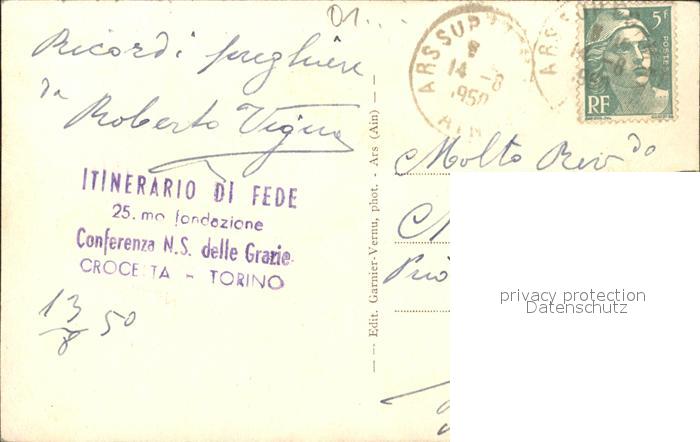 01...
Ricordi preghiere
da
Roberto Vigna
ITINERARIO DI FEDE
25.mo fondazione
Conferenza N.S. delle Grazie
CROCETTA - TORINO
13/8 50
Edit. Garnier-Vernu, phot. - Ars (Ain)
ARS SUR
14 -8
1950
AIN
ARS SUR
14 -8
1950
5F
POSTES
RF
Molto Rev do
privacy protection
Datenschutz